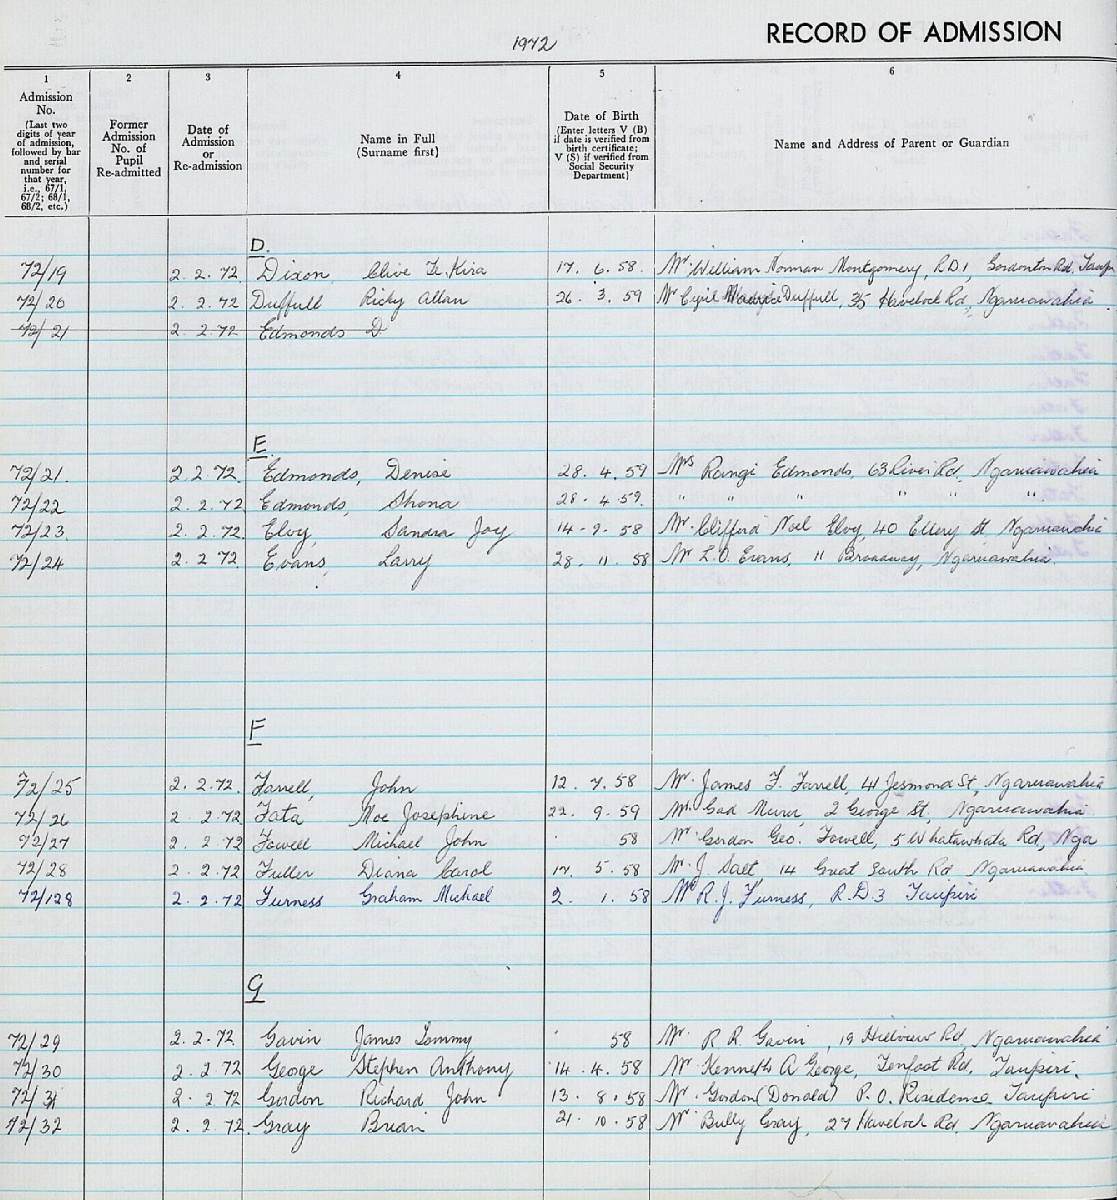 1972
RECORD OF ADMISSION
1 2 3 4 5 6
Admission No. (Last two digits of year of admission, followed by bar and serial number for that year, i.e., 67/1, 67/2; 68/1, 68/2, etc.)
Former Admission No. of Pupil Re-admitted
Date of Admission or Re-admission
Name in Full (Surname first)
Date of Birth (Enter letters V (B) if date is verified from birth certificate; V (S) if verified from Social Security Department)
Name and Address of Parent or Guardian
D.
72/19 2.2.72 Dixon Clive Te Kira 17.6.58. Mr William Norman Montgomery, R.D.1, Gordonton Rd, Taup
72/20 2.2.72 Duffull Ricky Allan 26.3.59 Mr Cyril Duffull, 35 Havelock Rd, Ngaruawahia
72/21 2.2.72 Edmonds D
E.
72/21. 2.2.72. Edmonds, Denise 28.4.59 Mrs Rangi Edmonds, 63 River Rd, Ngaruawahia
72/22 2.2.72 Edmonds, Shona 28.4.59. " " " " " "
72/23 2.2.72. Eloy, Sandra Joy 14-9.58 Mr. Clifford Noel Eloy, 40 Ellery St Ngaruawahia
72/24 2.2.72 Evans, Larry 28.11.58 Mr L.O. Evans, 11 Broadway, Ngaruawahia.
F
72/25 2.2.72. Farrell, John 12.7.58 Mr. James F. Farrell, 41 Jesmond St, Ngaruawahia
72/26 2 2.72 Fata Moe Josephine 22.9.59 Gad 2 George St. Ngaruawahia
72/27 2.2.72 Fowell Michael John 58 Mr Gordon Geo. Fowell, 5 Whatawhata Rd, Nga
72/28 2.2.72 Fuller Diana Carol 17.5.58 Mr. J. Salt, 14 Great South Rd Ngaruawahia
72/128 2.2.72 Furness Graham Michael 2.1.58 Mr R.J. Furness, R.D.3 Taupiri
G
72/29 2.2.72 Gavin James Tommy 58 Mr. R R Gavin, 19 Hillview Rd, Ngaruawahia
72/30 2.2.72 George Stephen Anthony 14.4.58 Mr Kenneth A George, Tenfoot Rd, Taupiri.
72/31 2.2.72 Gordon Richard John 13.8.58 Mr. Gordon (Donald) P.O. Residence Taupiri
72/32 2.2.72. Gray Brian 21.10.58 Mr Billy Gray, 27 Havelock Rd, Ngaruawahia